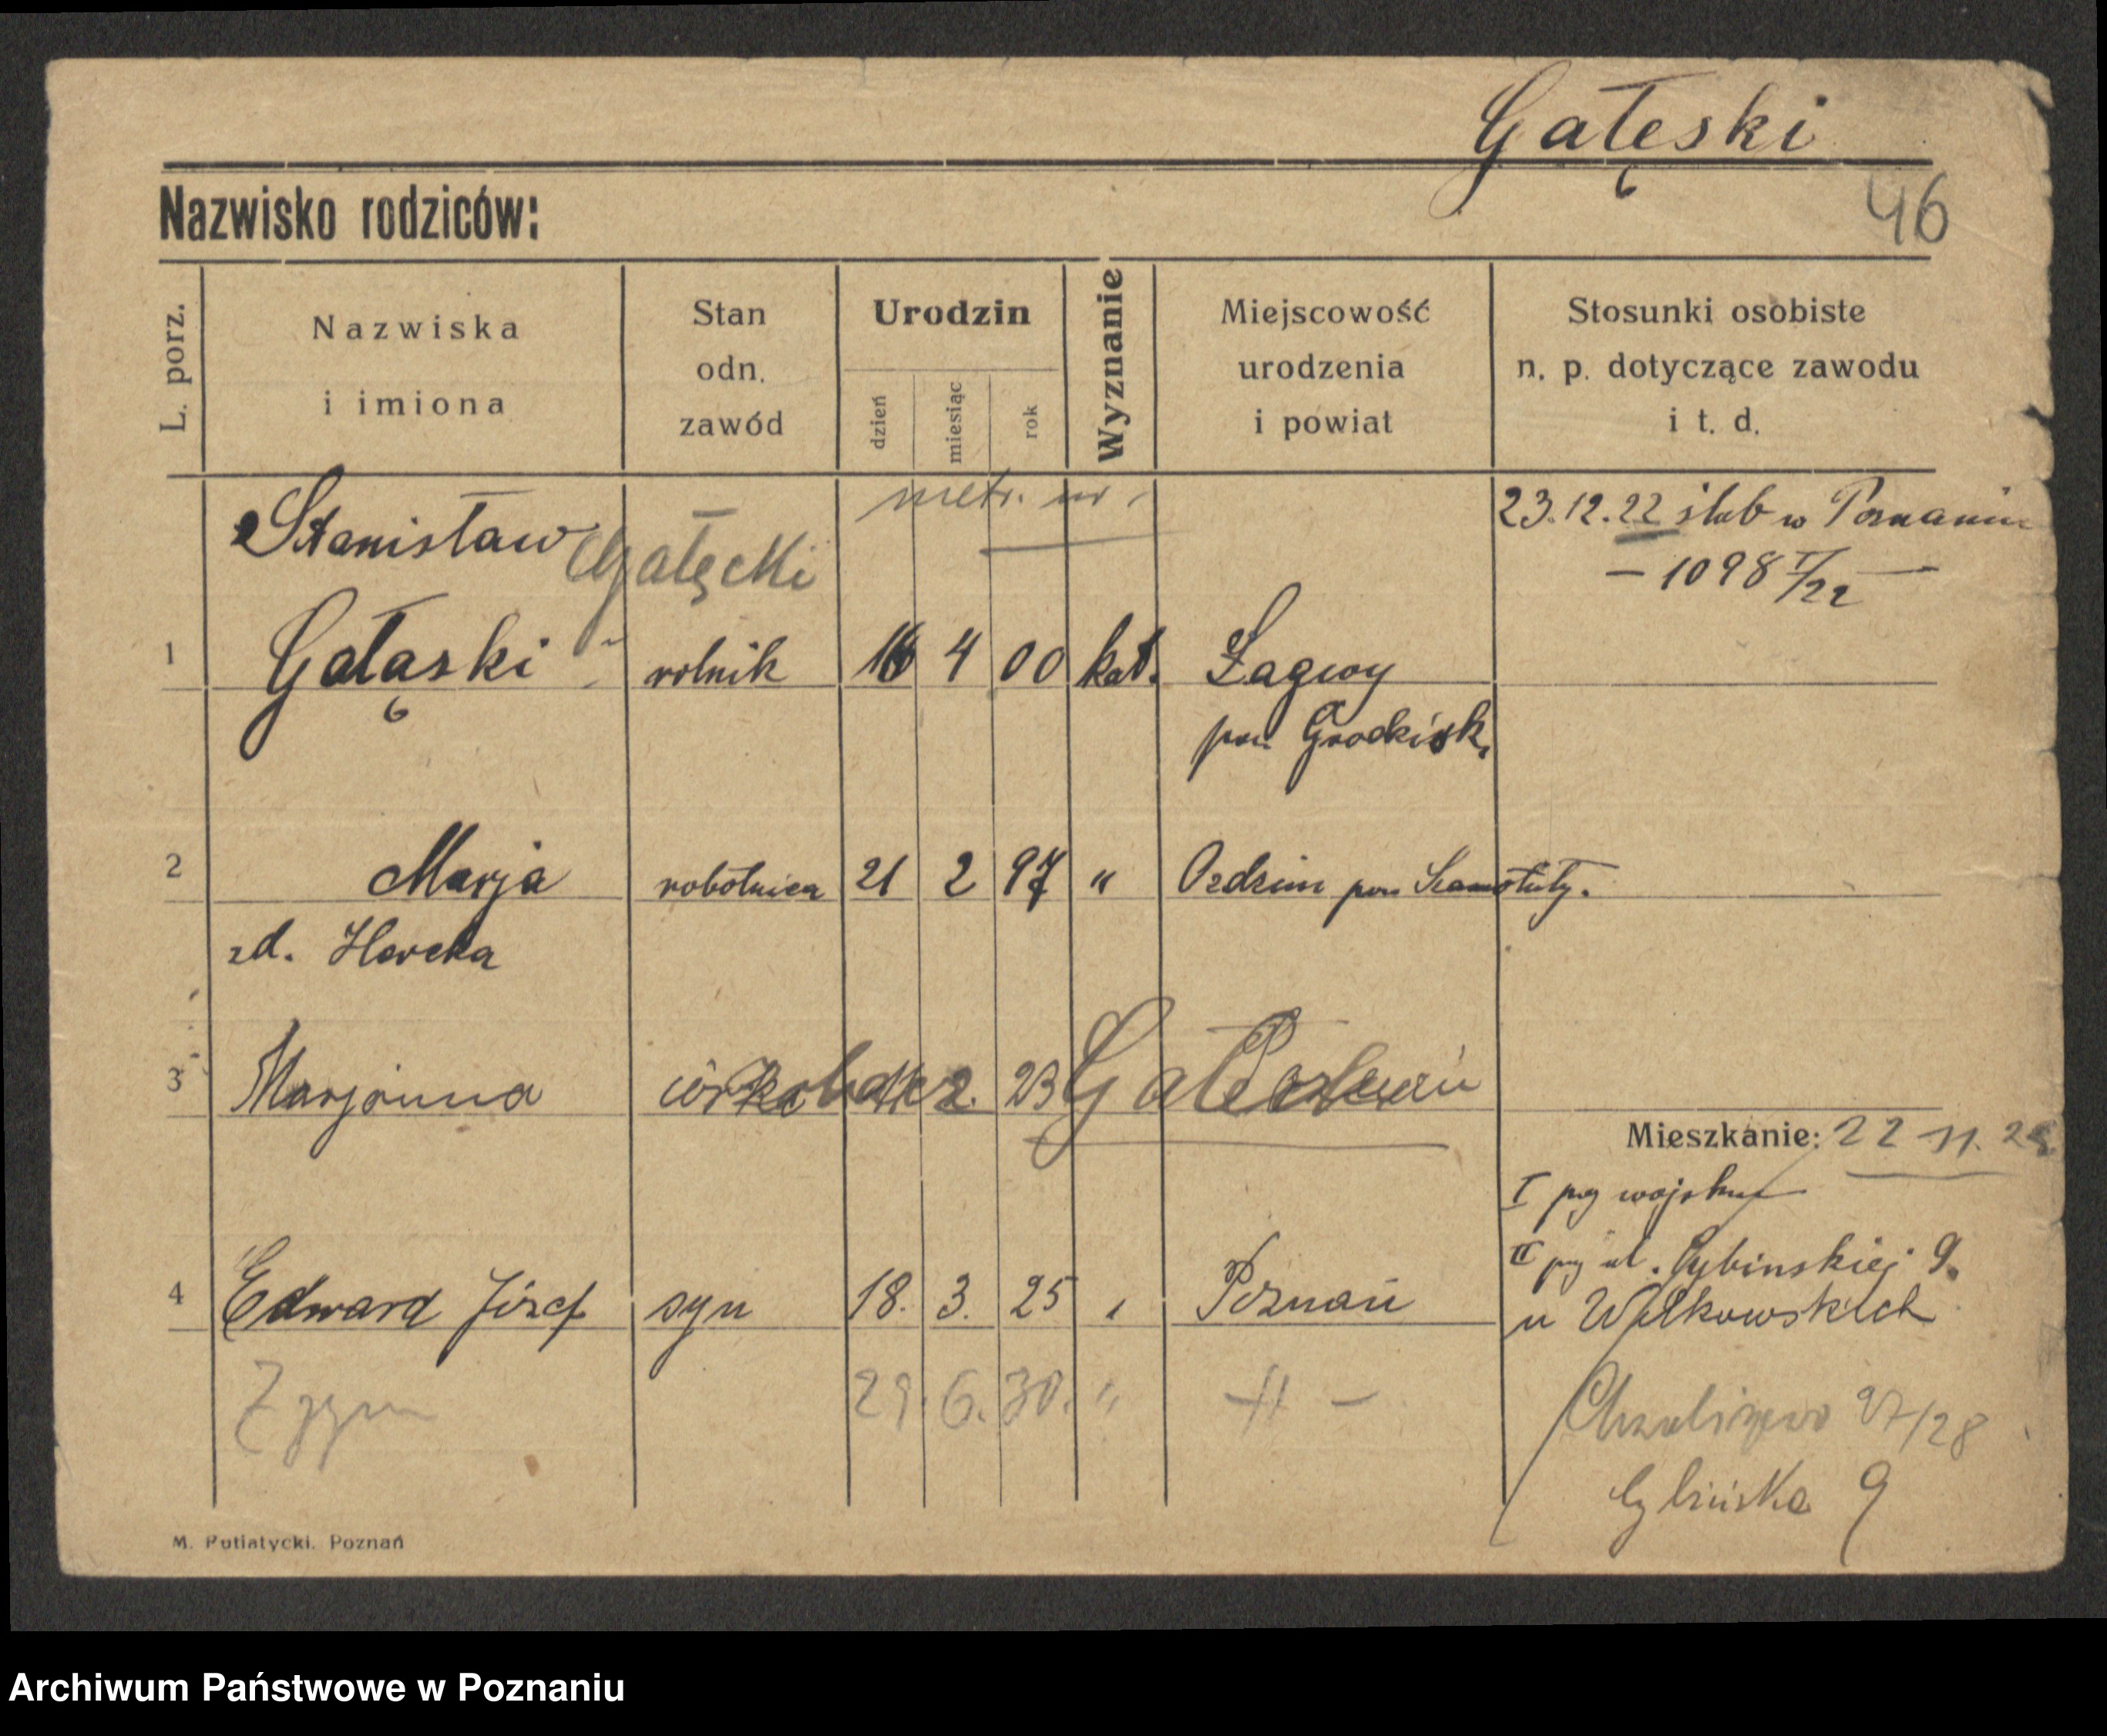 Gałęski
Nazwisko rodziców:
46
L. porz.
Nazwiska
i imiona
Stan
odn.
zawód
Urodzin
dzień
miesiąc
rok
Wyznanie
Miejscowość
urodzenia
i powiat
Stosunki osobiste
n. p. dotyczące zawodu
i t. d.
metr. nr
Stanisław
Gałęcki
23.12.22 ślub w Poznaniu
— 1098 I/22 —
1 Gałąski rolnik 16 4 00 kat. Łagwy
pow. Grodzisk
2 Marja robotnica 21 2 97 " Ordzin pow Szamotuły.
zd. Horcka
3 Marjanna córka 2. 23
Mieszkanie: 22 11.
I przy wojsku
II przy ul. Cybińskiej 9.
4 Edward Józef syn 18. 3. 25 " Poznań
u Wilkowskich
Zygm 29. 6. 30. " —"—
27/28
Cybińska 9
M. Putiatycki. Poznań
Archiwum Państwowe w Poznaniu